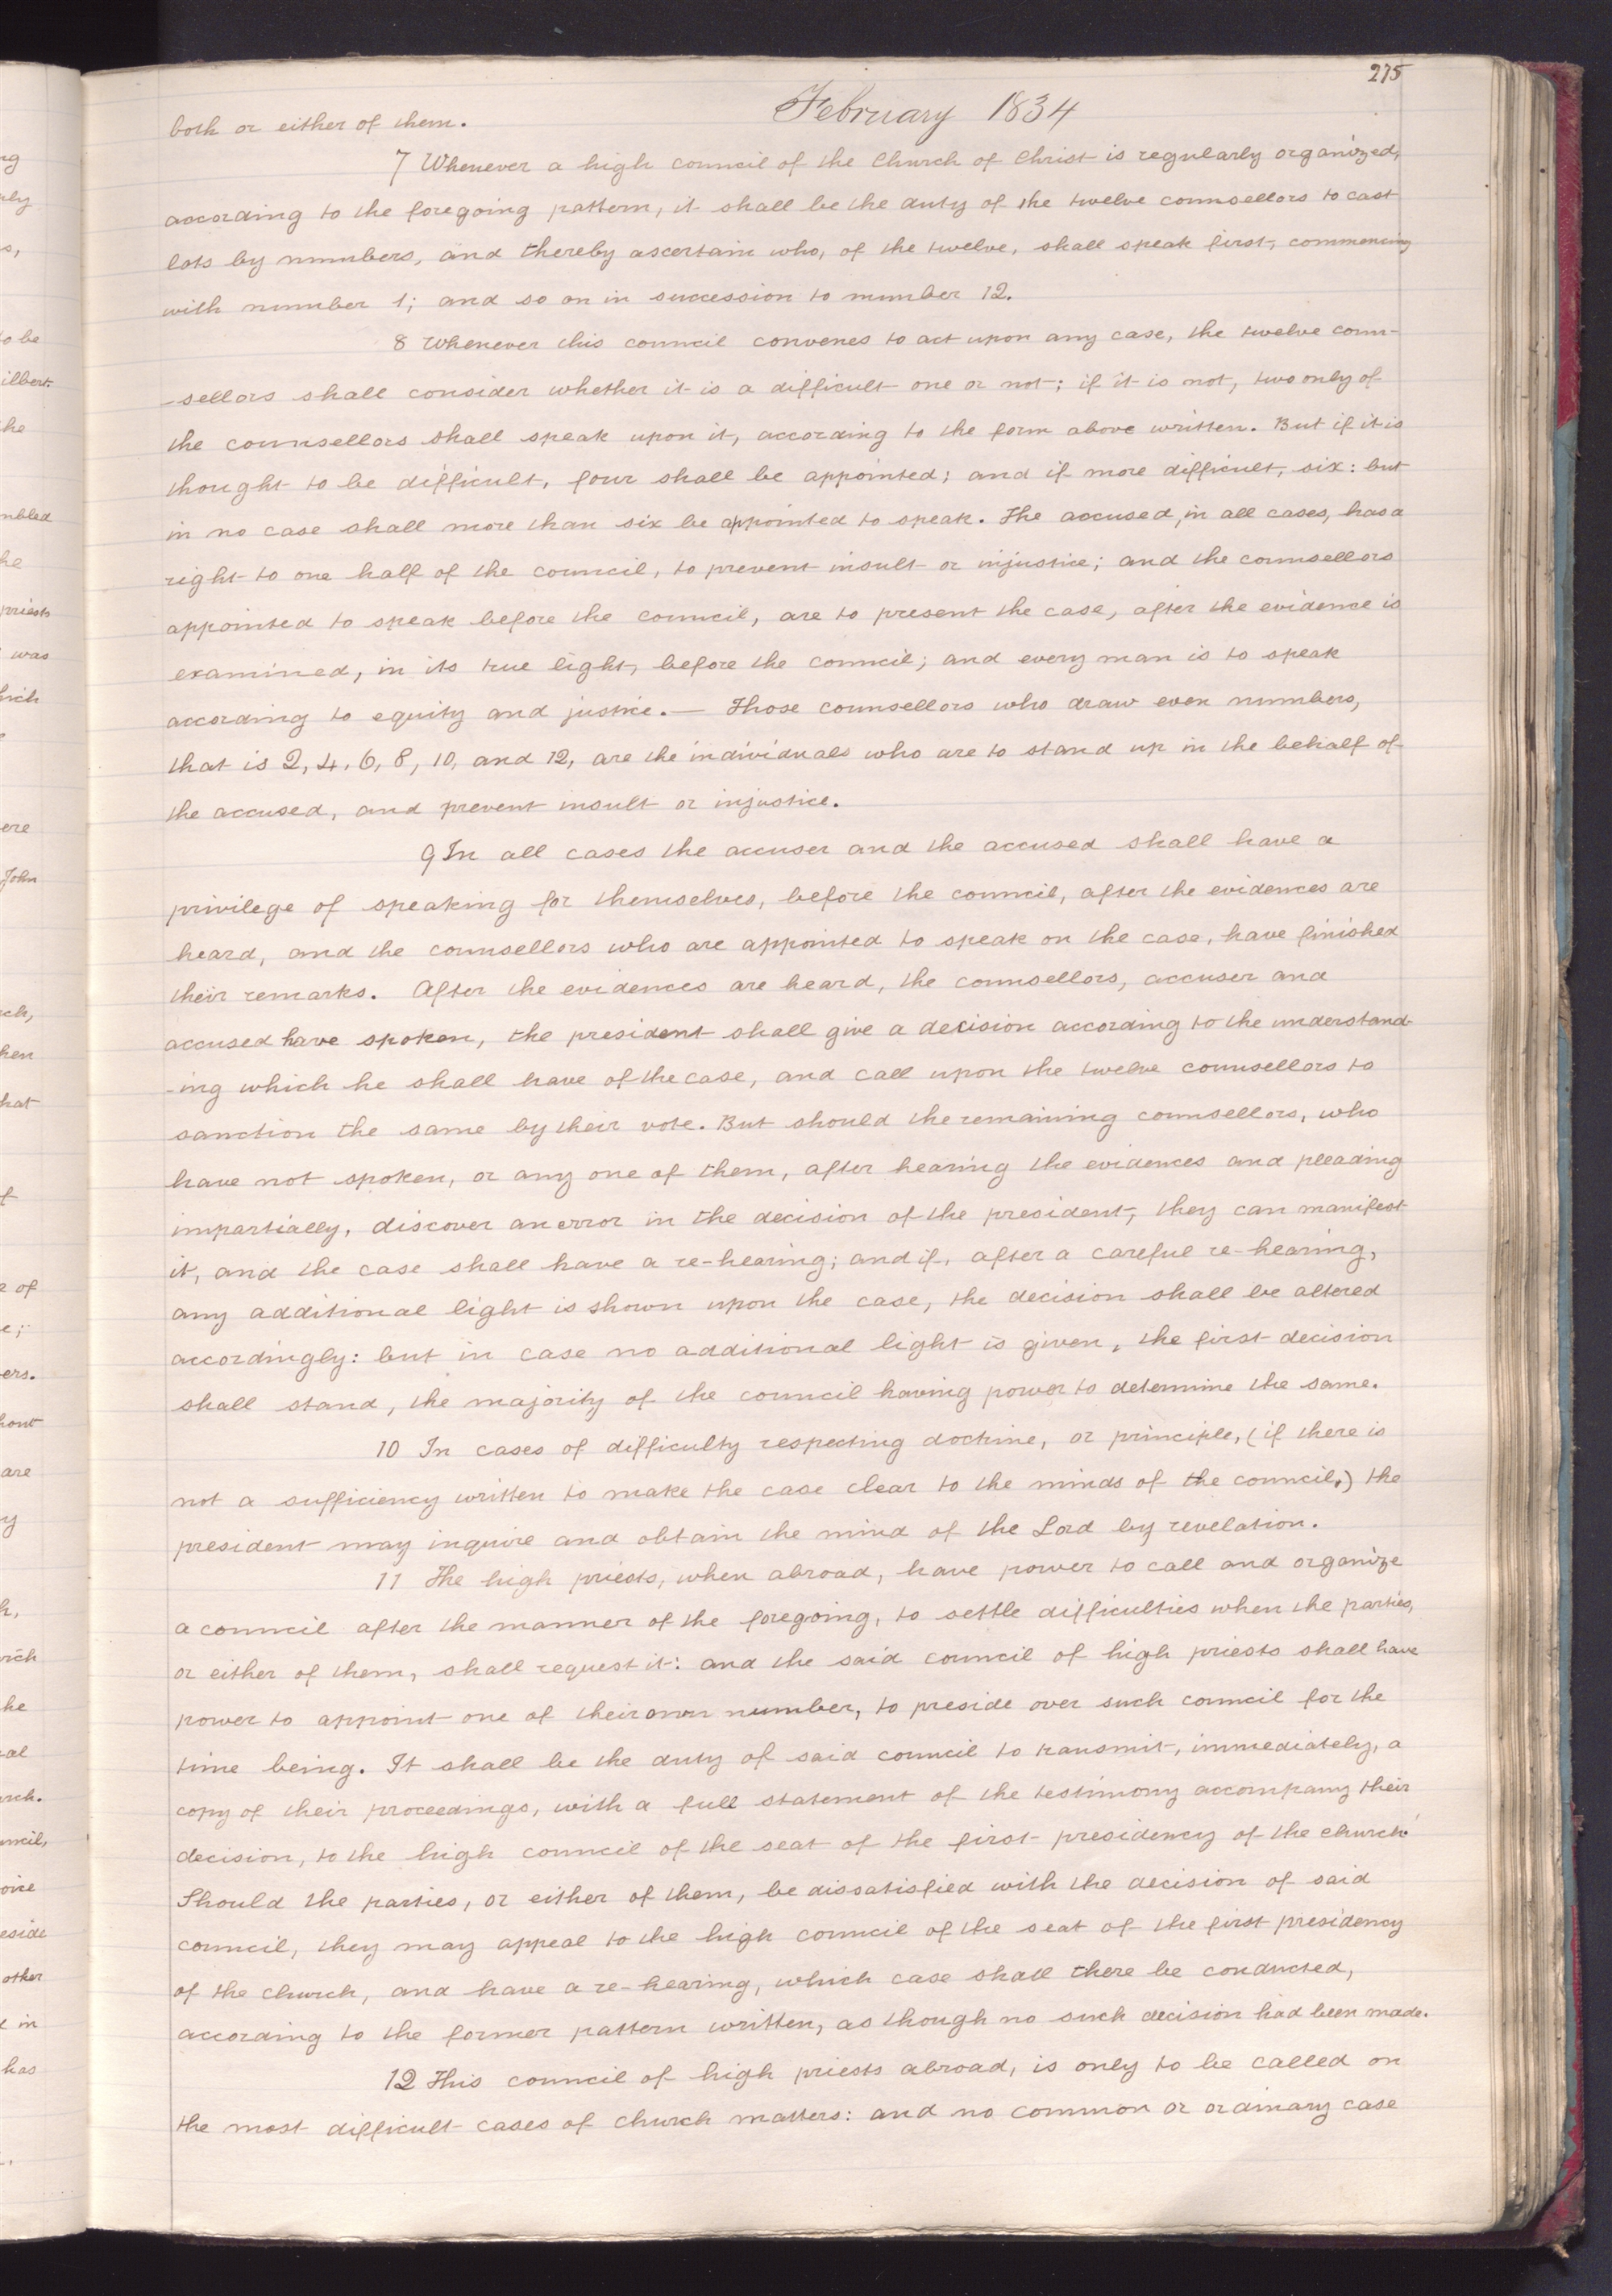 275
February 1834
both or either of them.
7 Whenever a high council of the Church of Christ is regularly organized,
according to the foregoing pattern, it shall be the duty of the twelve counsellors to cast
lots by numbers, and thereby ascertain who, of the twelve, shall speak first, commencing
with number 1; and so on in succession to number 12.
8 Whenever this council convenes to act upon any case, the twelve coun-
-sellors shall consider whether it is a difficult one or not; if it is not, two only of
the counsellors shall speak upon it, according to the form above written. But if it is
thought to be difficult, four shall be appointed; and if more difficult, six: but
in no case shall more than six be appointed to speak. The accused, in all cases, has a
right to one half of the council, to prevent insult or injustice; and the counsellors
appointed to speak before the council, are to present the case, after the evidence is
examined, in its true light, before the council; and every man is to speak
according to equity and justice. — Those counsellors who draw even numbers,
that is 2, 4, 6, 8, 10, and 12, are the individuals who are to stand up in the behalf of
the accused, and prevent insult or injustice.
9 In all cases the accuser and the accused shall have a
privilege of speaking for themselves, before the council, after the evidences are
heard, and the counsellors who are appointed to speak on the case, have finished
their remarks. After the evidences are heard, the counsellors, accuser and
accused have spoken, the president shall give a decision according to the understand-
-ing which he shall have of the case, and call upon the twelve counsellors to
sanction the same by their vote. But should the remaining counsellors, who
have not spoken, or any one of them, after hearing the evidences and pleading
impartially, discover an error in the decision of the president, they can manifest
it, and the case shall have a re-hearing; and if, after a careful re-hearing,
any additional light is shown upon the case, the decision shall be altered
accordingly: but in case no additional light is given, the first decision
shall stand, the majority of the council having power to determine the same.
10 In cases of difficulty respecting doctrine, or principle, (if there is
not a sufficiency written to make the case clear to the minds of the council,) the
president may inquire and obtain the mind of the Lord by revelation.
11 The high priests, when abroad, have power to call and organize
a council after the manner of the foregoing, to settle difficulties when the parties,
or either of them, shall request it: and the said council of high priests shall have
power to appoint one of their own number, to preside over such council for the
time being. It shall be the duty of said council to transmit, immediately, a
copy of their proceedings, with a full statement of the testimony accompany their
decision, to the high council of the seat of the first presidency of the church.
Should the parties, or either of them, be dissatisfied with the decision of said
council, they may appeal to the high council of the seat of the first presidency
of the church, and have a re-hearing, which case shall there be conducted,
according to the former pattern written, as though no such decision had been made.
12 This council of high priests abroad, is only to be called on
the most difficult cases of church matters: and no common or ordinary case